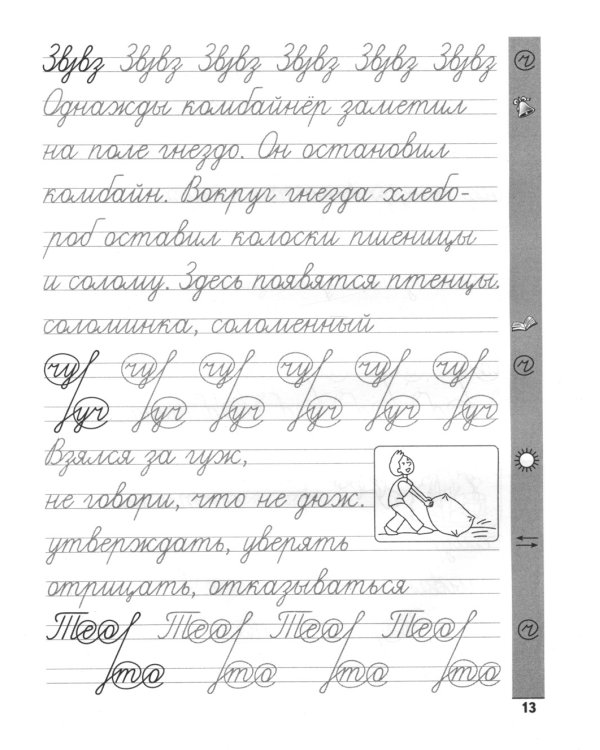 Звјвз Звјвз Звјвз Звјвз Звјвз Звјвз
Однажды комбайнёр заметил
на поле гнездо. Он остановил
комбайн. Вокруг гнезда хлебо-
роб оставил колоски пшеницы
и солому. Здесь появятся птенцы.
соломинка, соломенный
чу чу чу чу чу чу
уч уч уч уч уч уч
Взялся за гуж,
не говори, что не дюж.
утверждать, уверять
отрицать, отказываться
Тео Тео Тео Тео
то то то то
13